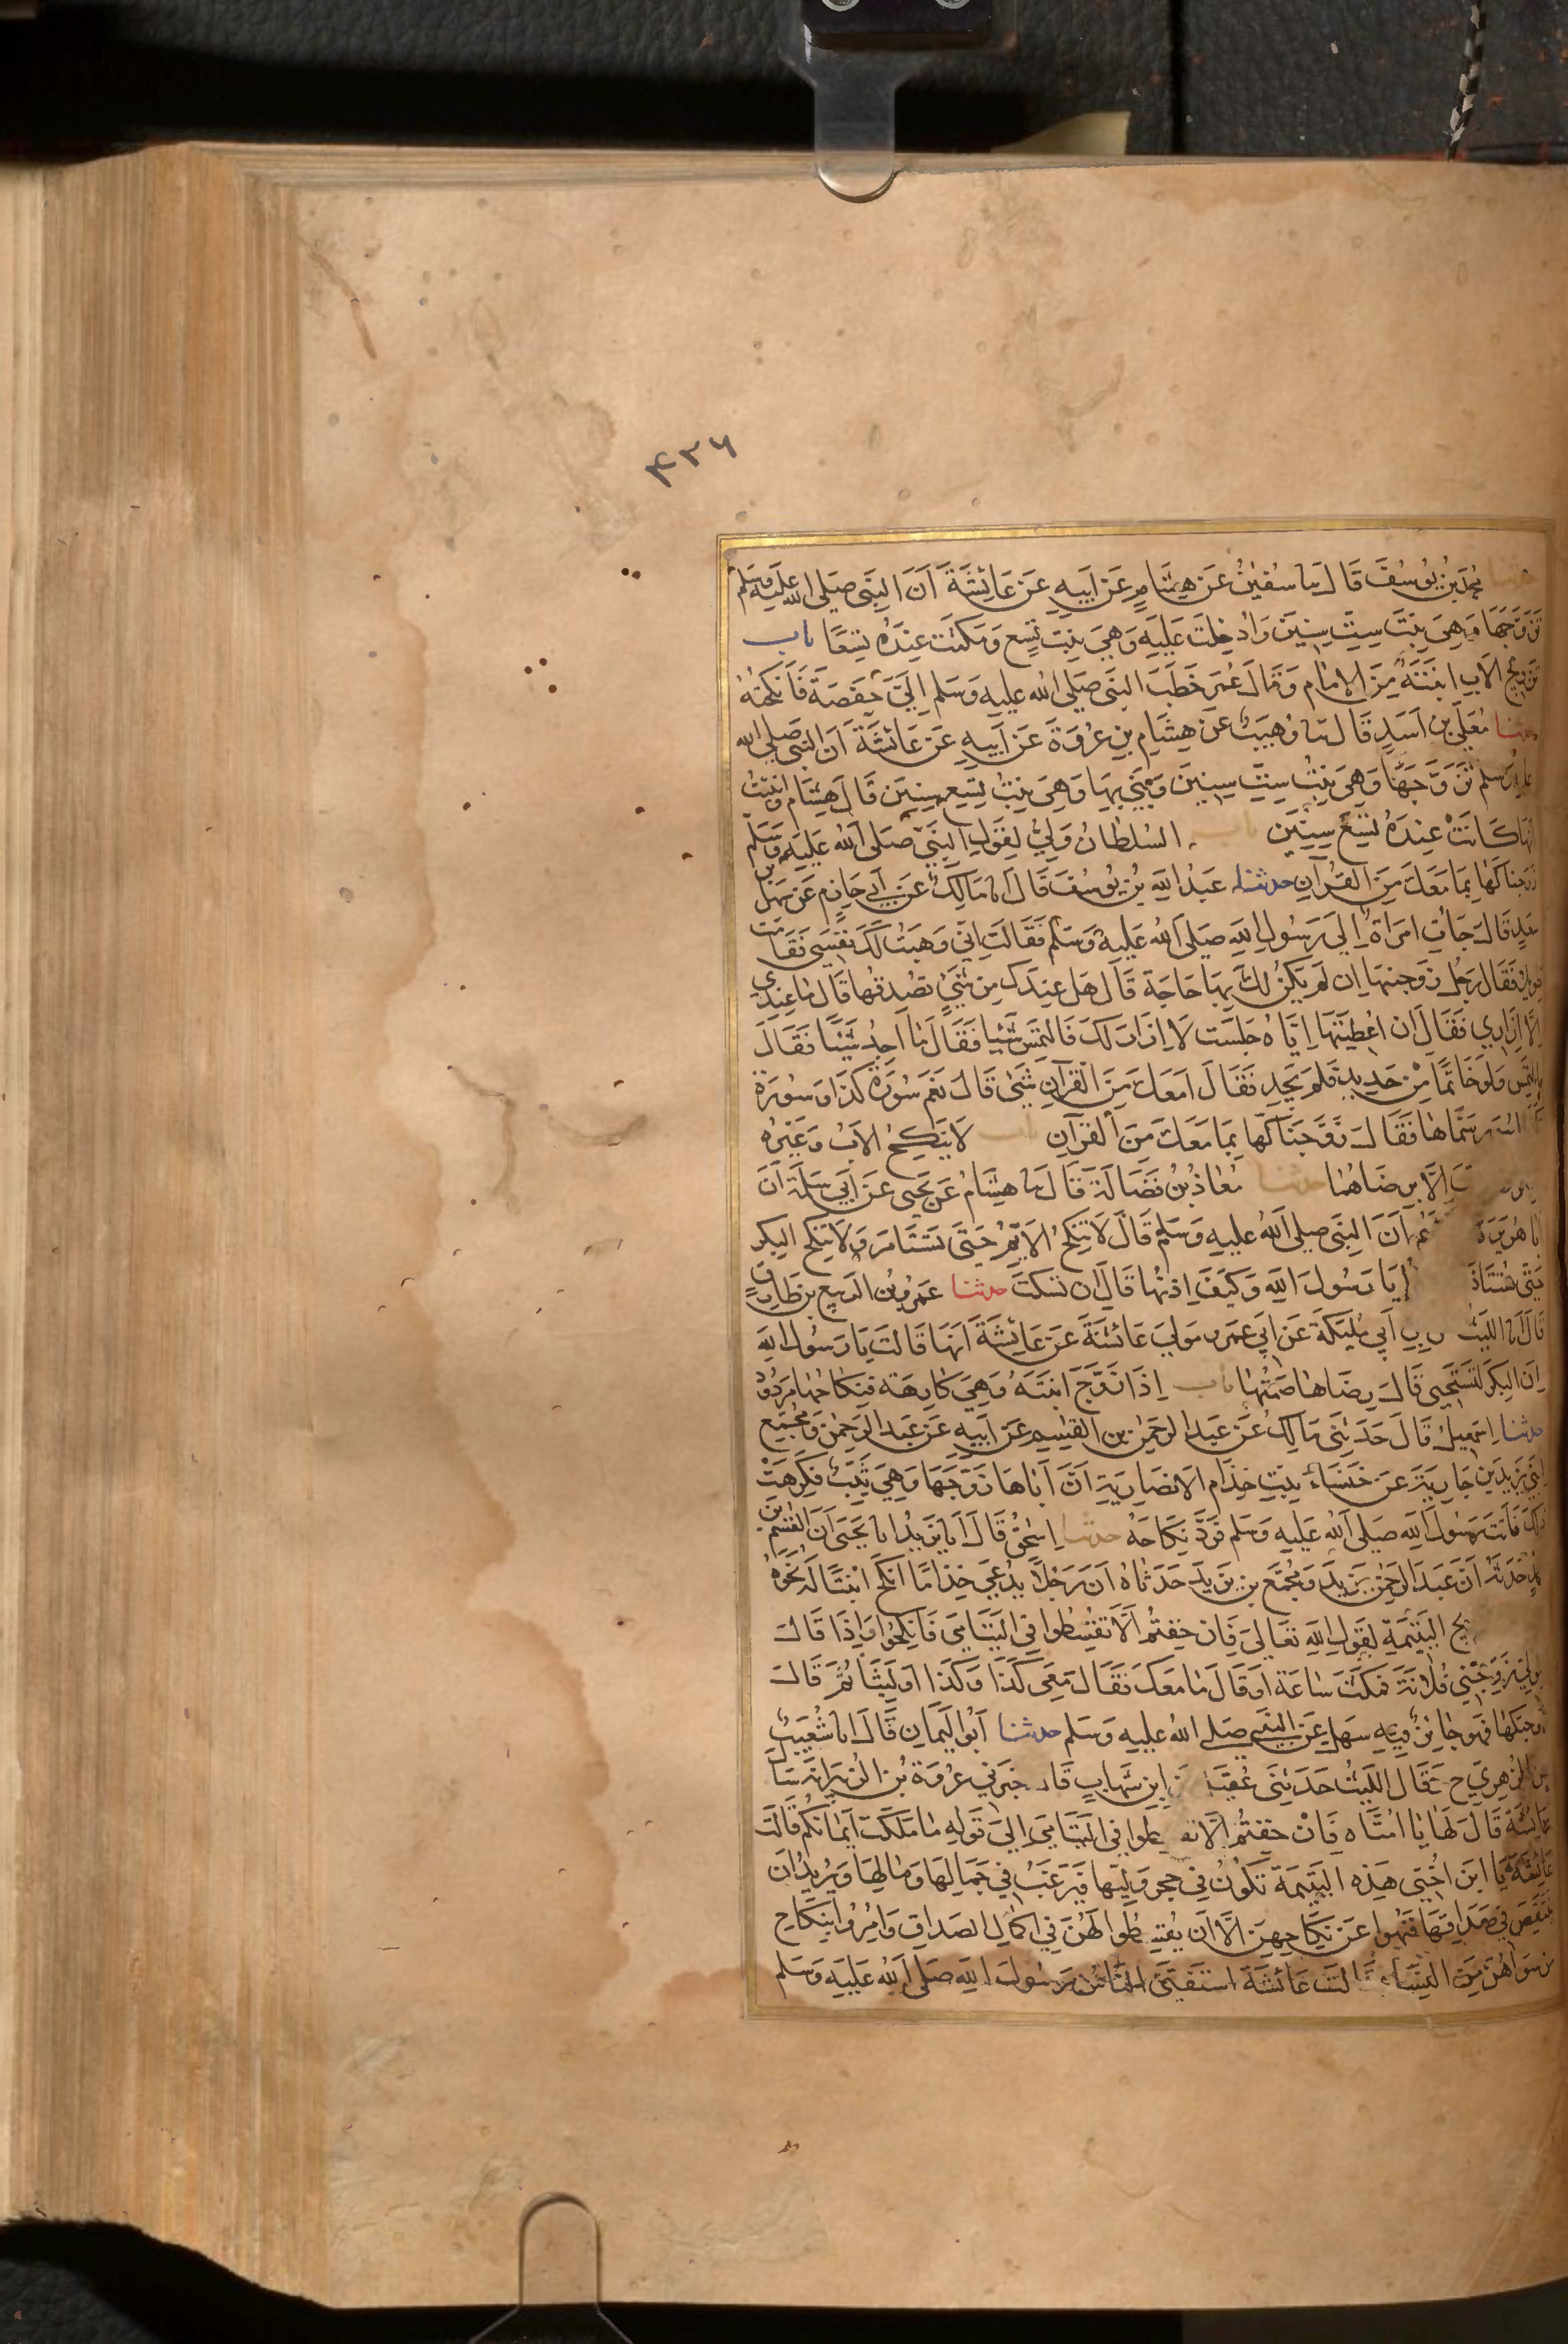 ۴۳۶
حدثنا محمد بن يوسف قال نا سفين عن هشام عن ابيه عن عائشة ان النبي صلى الله عليه وسلم
تزوجها وهي بنت ست سنين وادخلت عليه وهي بنت تسع ومكثت عنده تسعا باب
تزويج الاب ابنته من الامام وقال عمر خطب النبي صلى الله عليه وسلم الي حفصة فانكحته
حدثنا معلى بن اسد قال نا وهيب عن هشام بن عروة عن ابيه عن عائشة ان النبي صلى الله
عليه وسلم تزوجها وهي بنت ست سنين وبنى بها وهي بنت تسع سنين قال هشام وانبئت
انها كانت عنده تسع سنين باب السلطان ولي لقول النبي صلى الله عليه وسلم
زوجناكها بما معك من القرآن حدثنا عبد الله بن يوسف قال انا مالك عن ابي حازم عن سهل بن
سعد قال جات امراة الى رسول الله صلى الله عليه وسلم فقالت اني وهبت لك نفسي فقامت
طويلا فقال رجل زوجنيها ان لم يكن لك بها حاجة قال هل عندك من شيء تصدقها قال ما عندي
الا ازاري فقال ان اعطيتها اياه جلست لا ازار لك فالتمس شيئا فقال ما اجد شيئا فقال
التمس ولو خاتما من حديد فلم يجد فقال امعك من القرآن شيء قال نعم سورة كذا وسورة
لسور سماها فقال زوجناكها بما معك من القرآن باب لا ينكح الاب وغيره
الا برضاهما حدثنا معاذ بن فضالة قال نا هشام عن يحيى عن ابي سلمة ان
ابا هريرة ان النبي صلى الله عليه وسلم قال لا تنكح الايم حتى تستامر ولا تنكح البكر
حتى تستاذ يا رسول الله وكيف اذنها قال ان تسكت حدثنا عمرو بن الربيع بن طارق
قال انا الليث ابي مليكة عن ابي عمرو مولى عائشة عن عائشة انها قالت يا رسول الله
ان البكر لتستحيي قال رضاها صمتها باب اذا زوج ابنته وهي كارهة فنكاحها مردود
حدثنا اسمعيل قال حدثني مالك عن عبد الرحمن بن القسم عن ابيه عن عبد الرحمن ومجمع
ابني يزيد بن جارية عن خنساء بنت خذام الانصارية ان اباها زوجها وهي ثيب فكرهت
ذلك فاتت رسول الله صلى الله عليه وسلم فرد نكاحه حدثنا اسحق قال انا يزيد انا يحيى ان القسم بن
محمد حدثه ان عبد الرحمن بن يزيد ومجمع بن يزيد حدثاه ان رجلا يدعى خذاما انكح ابنتا له نحوه
يج اليتيمة لقول الله تعالى فان خفتم الا تقسطوا في اليتامى فانكحوا واذا قال
للولي زوجني فلانة فمكث ساعة او قال ما معك فقال معي كذا وكذا او لبثا ثم قال
زوجتكها فهو جائز فيه سهل عن النبي صلى الله عليه وسلم حدثنا ابو اليمان قال انا شعيب
عن الزهري ح وقال الليث حدثني عقيل عن ابن شهاب قال خبرني عروة بن الزبير انه سأل
عائشة قال لها يا امتاه فان خفتم الا تقسطوا في اليتامى الى قوله ما ملكت ايمانكم قالت
عائشة يا ابن اختي هذه اليتيمة تكون في حجر وليها فيرغب في جمالها ومالها ويريد ان
ينتقص في صداقها فنهوا عن نكاحهن الا ان يقسطوا لهن في اكمال الصداق وامروا بنكاح
من سواهن من النساء قالت عائشة استفتى الناس رسول الله صلى الله عليه وسلم